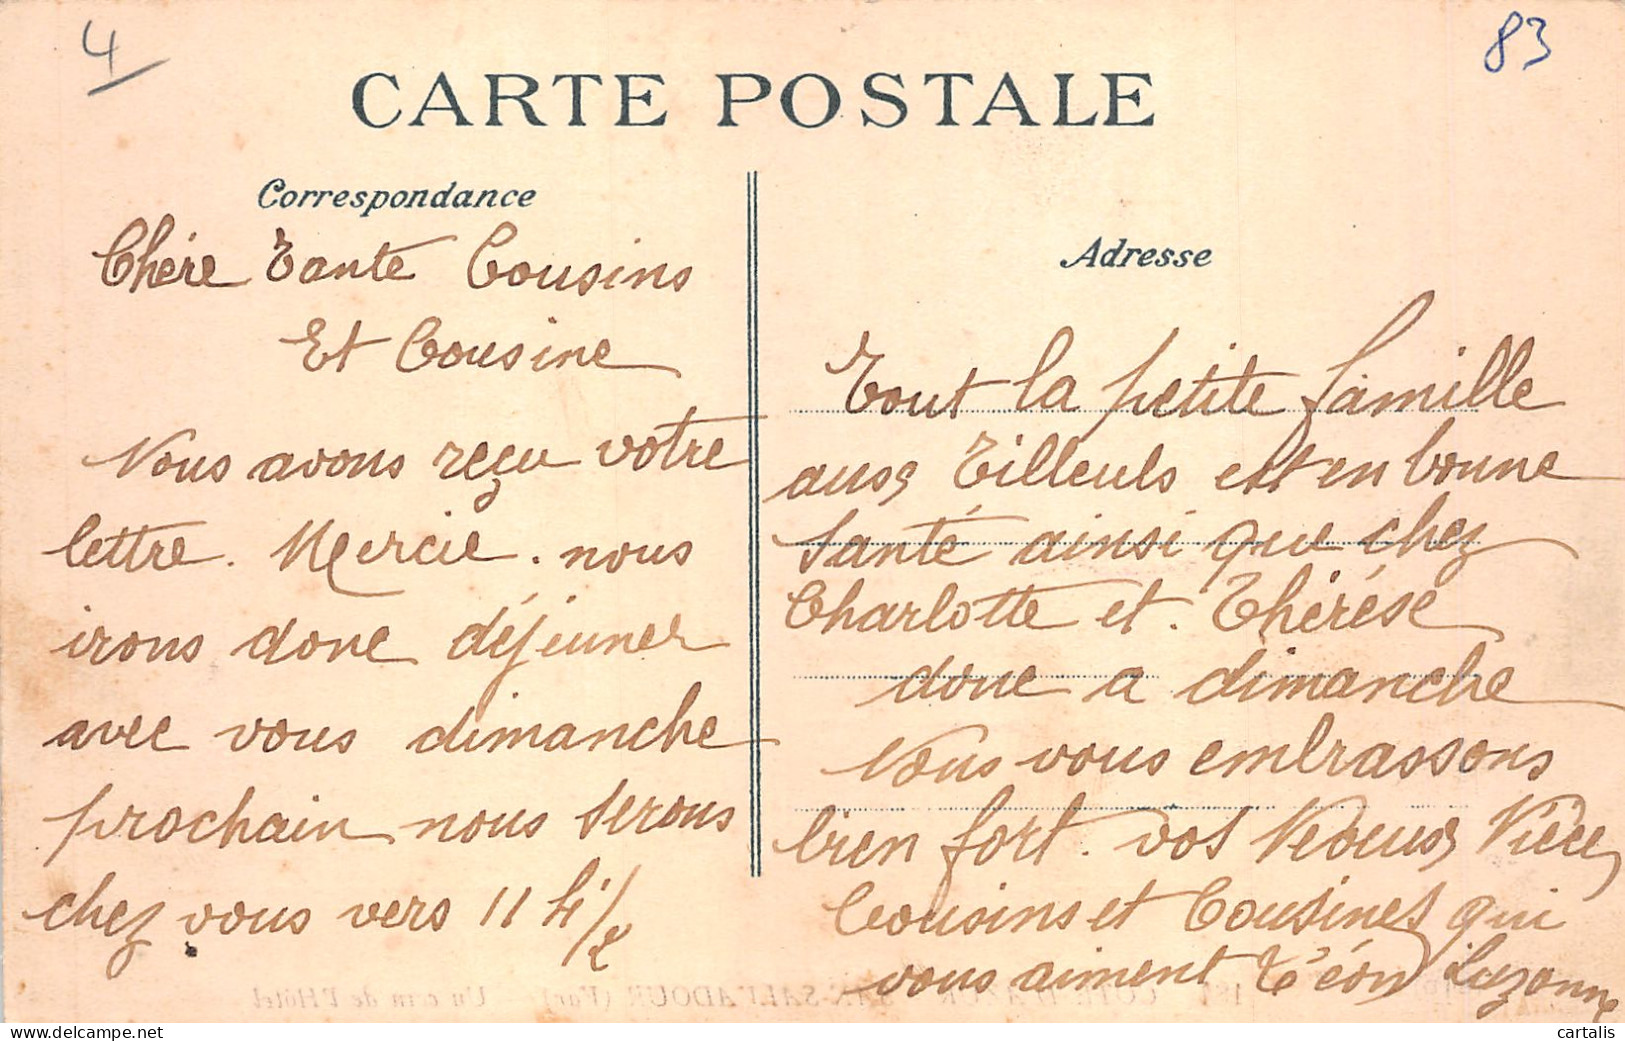 4
83
CARTE POSTALE
Correspondance
Chère Tante Cousins
Et Cousine
Nous avons reçu votre
lettre. Mercie. nous
irons donc déjeuner
avec vous dimanche
prochain nous serons
chez vous vers 11 h 1/2
Adresse
Tout la petite famille
auss Tilleuls est en bonne
santé ainsi que chez
Charlotte et. Thérése
donc a dimanche
Nous vous embrassons
bien fort. vos Neveus Nièces
Cousins et Cousines qui
vous aiment Léon Suzanne
181 CÔTE D'AZUR SAN-SALVADOUR (Var) Un coin de l'Hôtel
cartalis